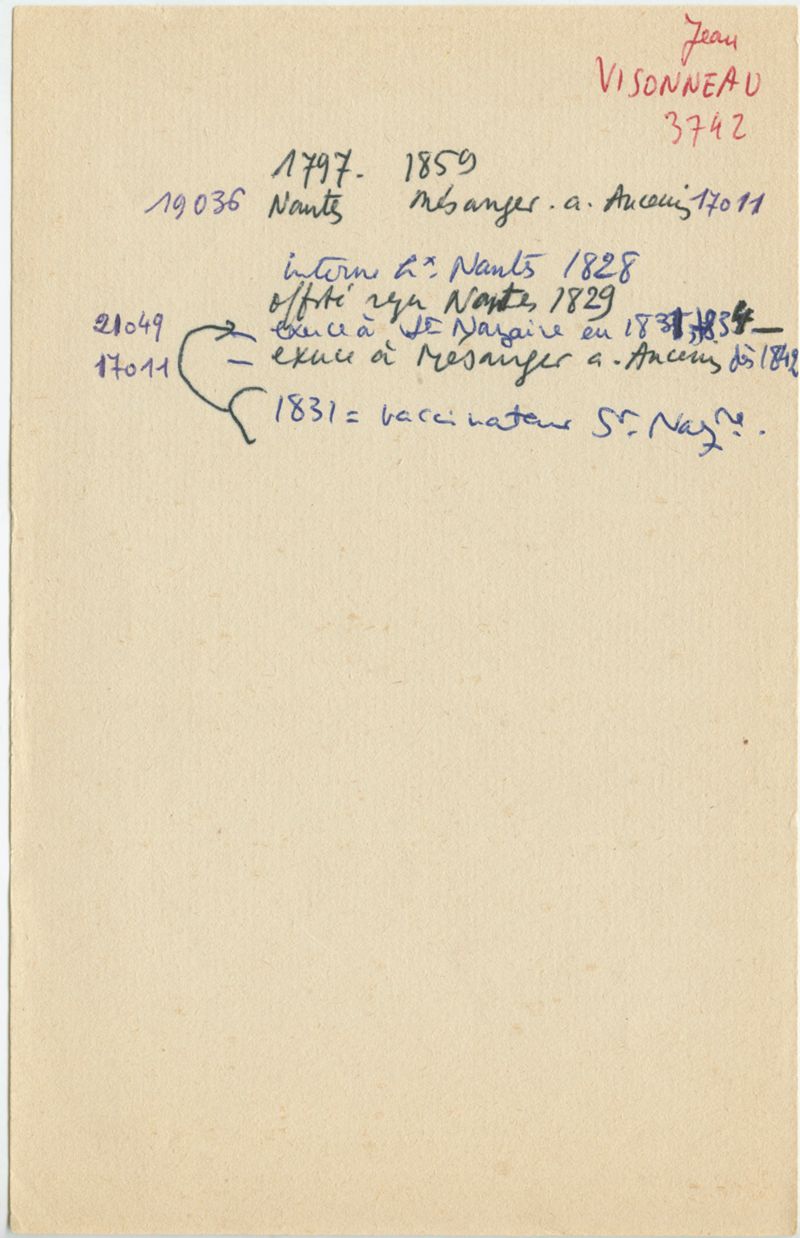 Jean
VISONNEAU
3742
1797. 1859
19036 Nantes Mésanger. a. Ancenis 17011
interne hx. Nantes 1828
Nantes 1829
21049 exerce à St Nazaire en 1831
17011 – exerce à Mésanger a. Ancenis dès 1842
1831 = vaccinateur St. Nazre.